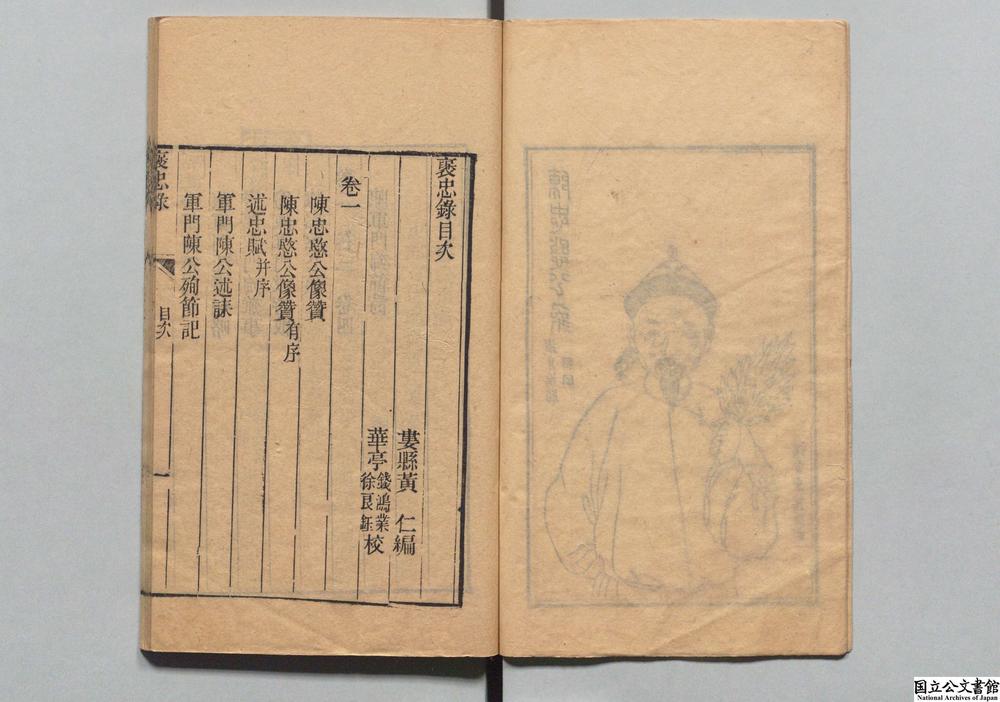 襃忠錄目次
婁縣黃　仁編
華亭錢鴻業徐良鈺校
卷一
陳忠愍公像贊
陳忠愍公像贊有序
述忠賦并序
軍門陳公述誄
軍門陳公殉節記
襃忠錄
目次
国立公文書館
National Archives of Japan